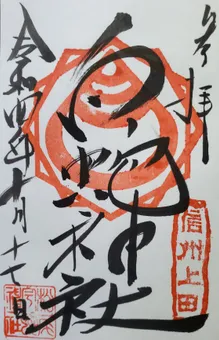 奉拝
白蛇神社
信州上田
令和四年十月十七日